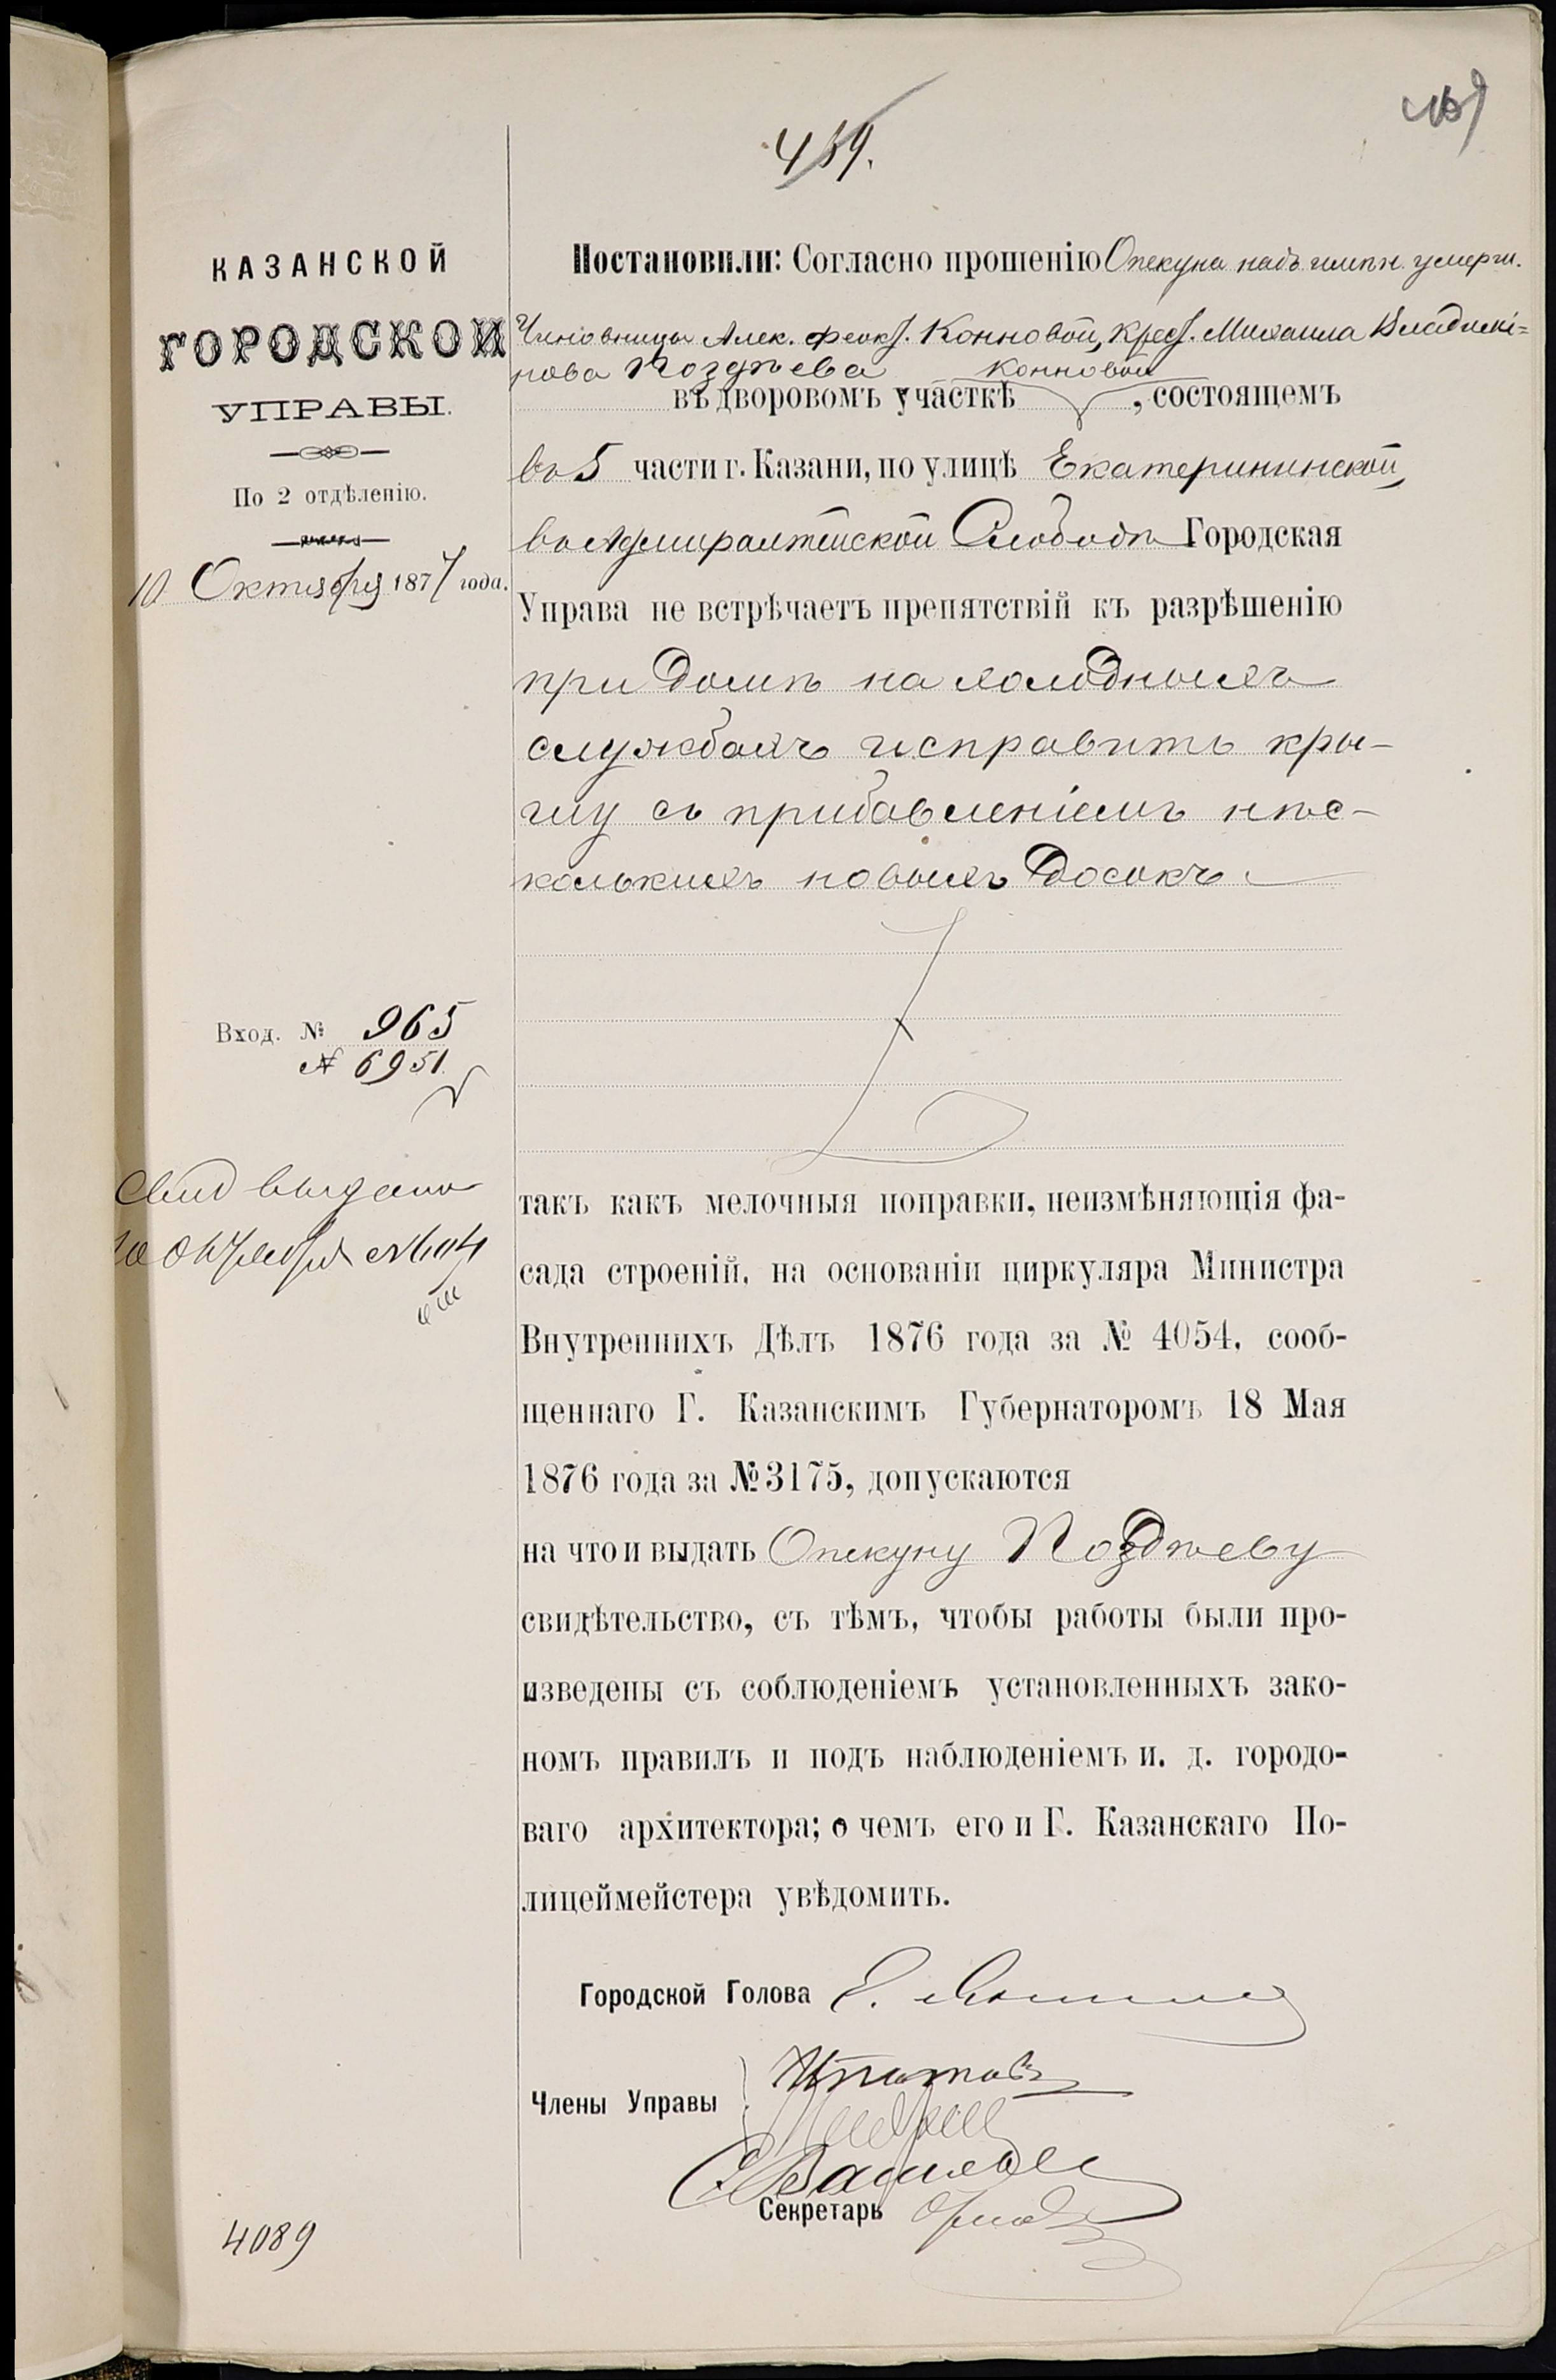 459.
КАЗАНСКОЙ
ГОРОДСКОЙ
УПРАВЫ.
По 2 отдѣленію.
10 Октября 1877 года.
Вход. № 965
№ 6951
Свид выдано
10 Октября № 604
4089
Постановили: Согласно прошенію Опекуна надъ имѣн. умерш.
Чиновницы Алек. Феокт. Конновой, Крест. Михаила Владимі=
рова Поздѣева Конновой
въ дворовомъ участкѣ , состоящемъ
въ 5 части г. Казани, по улицѣ Екатерининской,
въ Адмиралтейской Слободѣ Городская
Управа не встрѣчаетъ препятствій къ разрѣшенію
при домѣ на холодныхъ
службахъ исправить кры-
шу съ прибавленіемъ нѣс-
колькихъ новыхъ досокъ
такъ какъ мелочныя поправки, неизмѣняющія фа-
сада строеній, на основаніи циркуляра Министра
Внутреннихъ Дѣлъ 1876 года за № 4054, сооб-
щеннаго Г. Казанскимъ Губернаторомъ 18 Мая
1876 года за № 3175, допускаются
на что и выдать Опекуну Поздѣеву
свидѣтельство, съ тѣмъ, чтобы работы были про-
изведены съ соблюденіемъ установленныхъ зако-
номъ правилъ и подъ наблюденіемъ и. д. городо-
ваго архитектора; о чемъ его и Г. Казанскаго По-
лицеймейстера увѣдомить.
Городской Голова
Члены Управы
Ипатовъ
С. Васильев
Секретарь Орлов